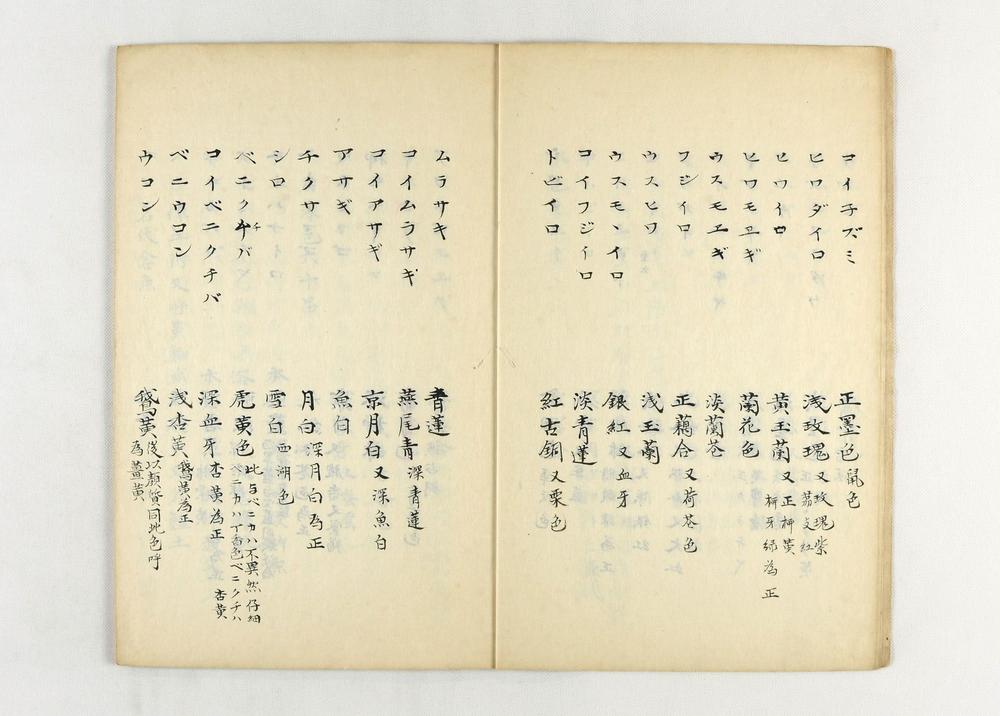 コイ子ズミ 正墨色 鼠色
ヒワダイロ 浅玫瑰 又玫瑰紫 茘支紅
ヒワイロ 黄玉蘭 又正柳黄 柳牙緑為正
ヒワモヱギ 蘭花色
ウスモエギ 淡蘭苍
フジイロ 正藕合 又荷苍色
ウスヒワ 浅玉蘭
ウスモヽイロ 銀紅 又血牙
コイフジイロ 淡青蓮
トビイロ 紅古銅 又栗色
ムラサキ 青蓮
コイムラサギ 燕尾青 深青蓮
コイアサギ 京月白 又深魚白
アサギ 魚白
チクサ 月白 深月白為正
シロ 雪白 西湖色
ベニクチバ 虎黄色 此与ベニカハ不異然仔細 ベニカハ丁香色ベニクチハ杏黄
コイベニクチバ 深血牙 杏黄為正
ベニウコン 浅杏黄 鵝黄為正
ウコン 鵝黄 後以顔背同此色呼為薑黄